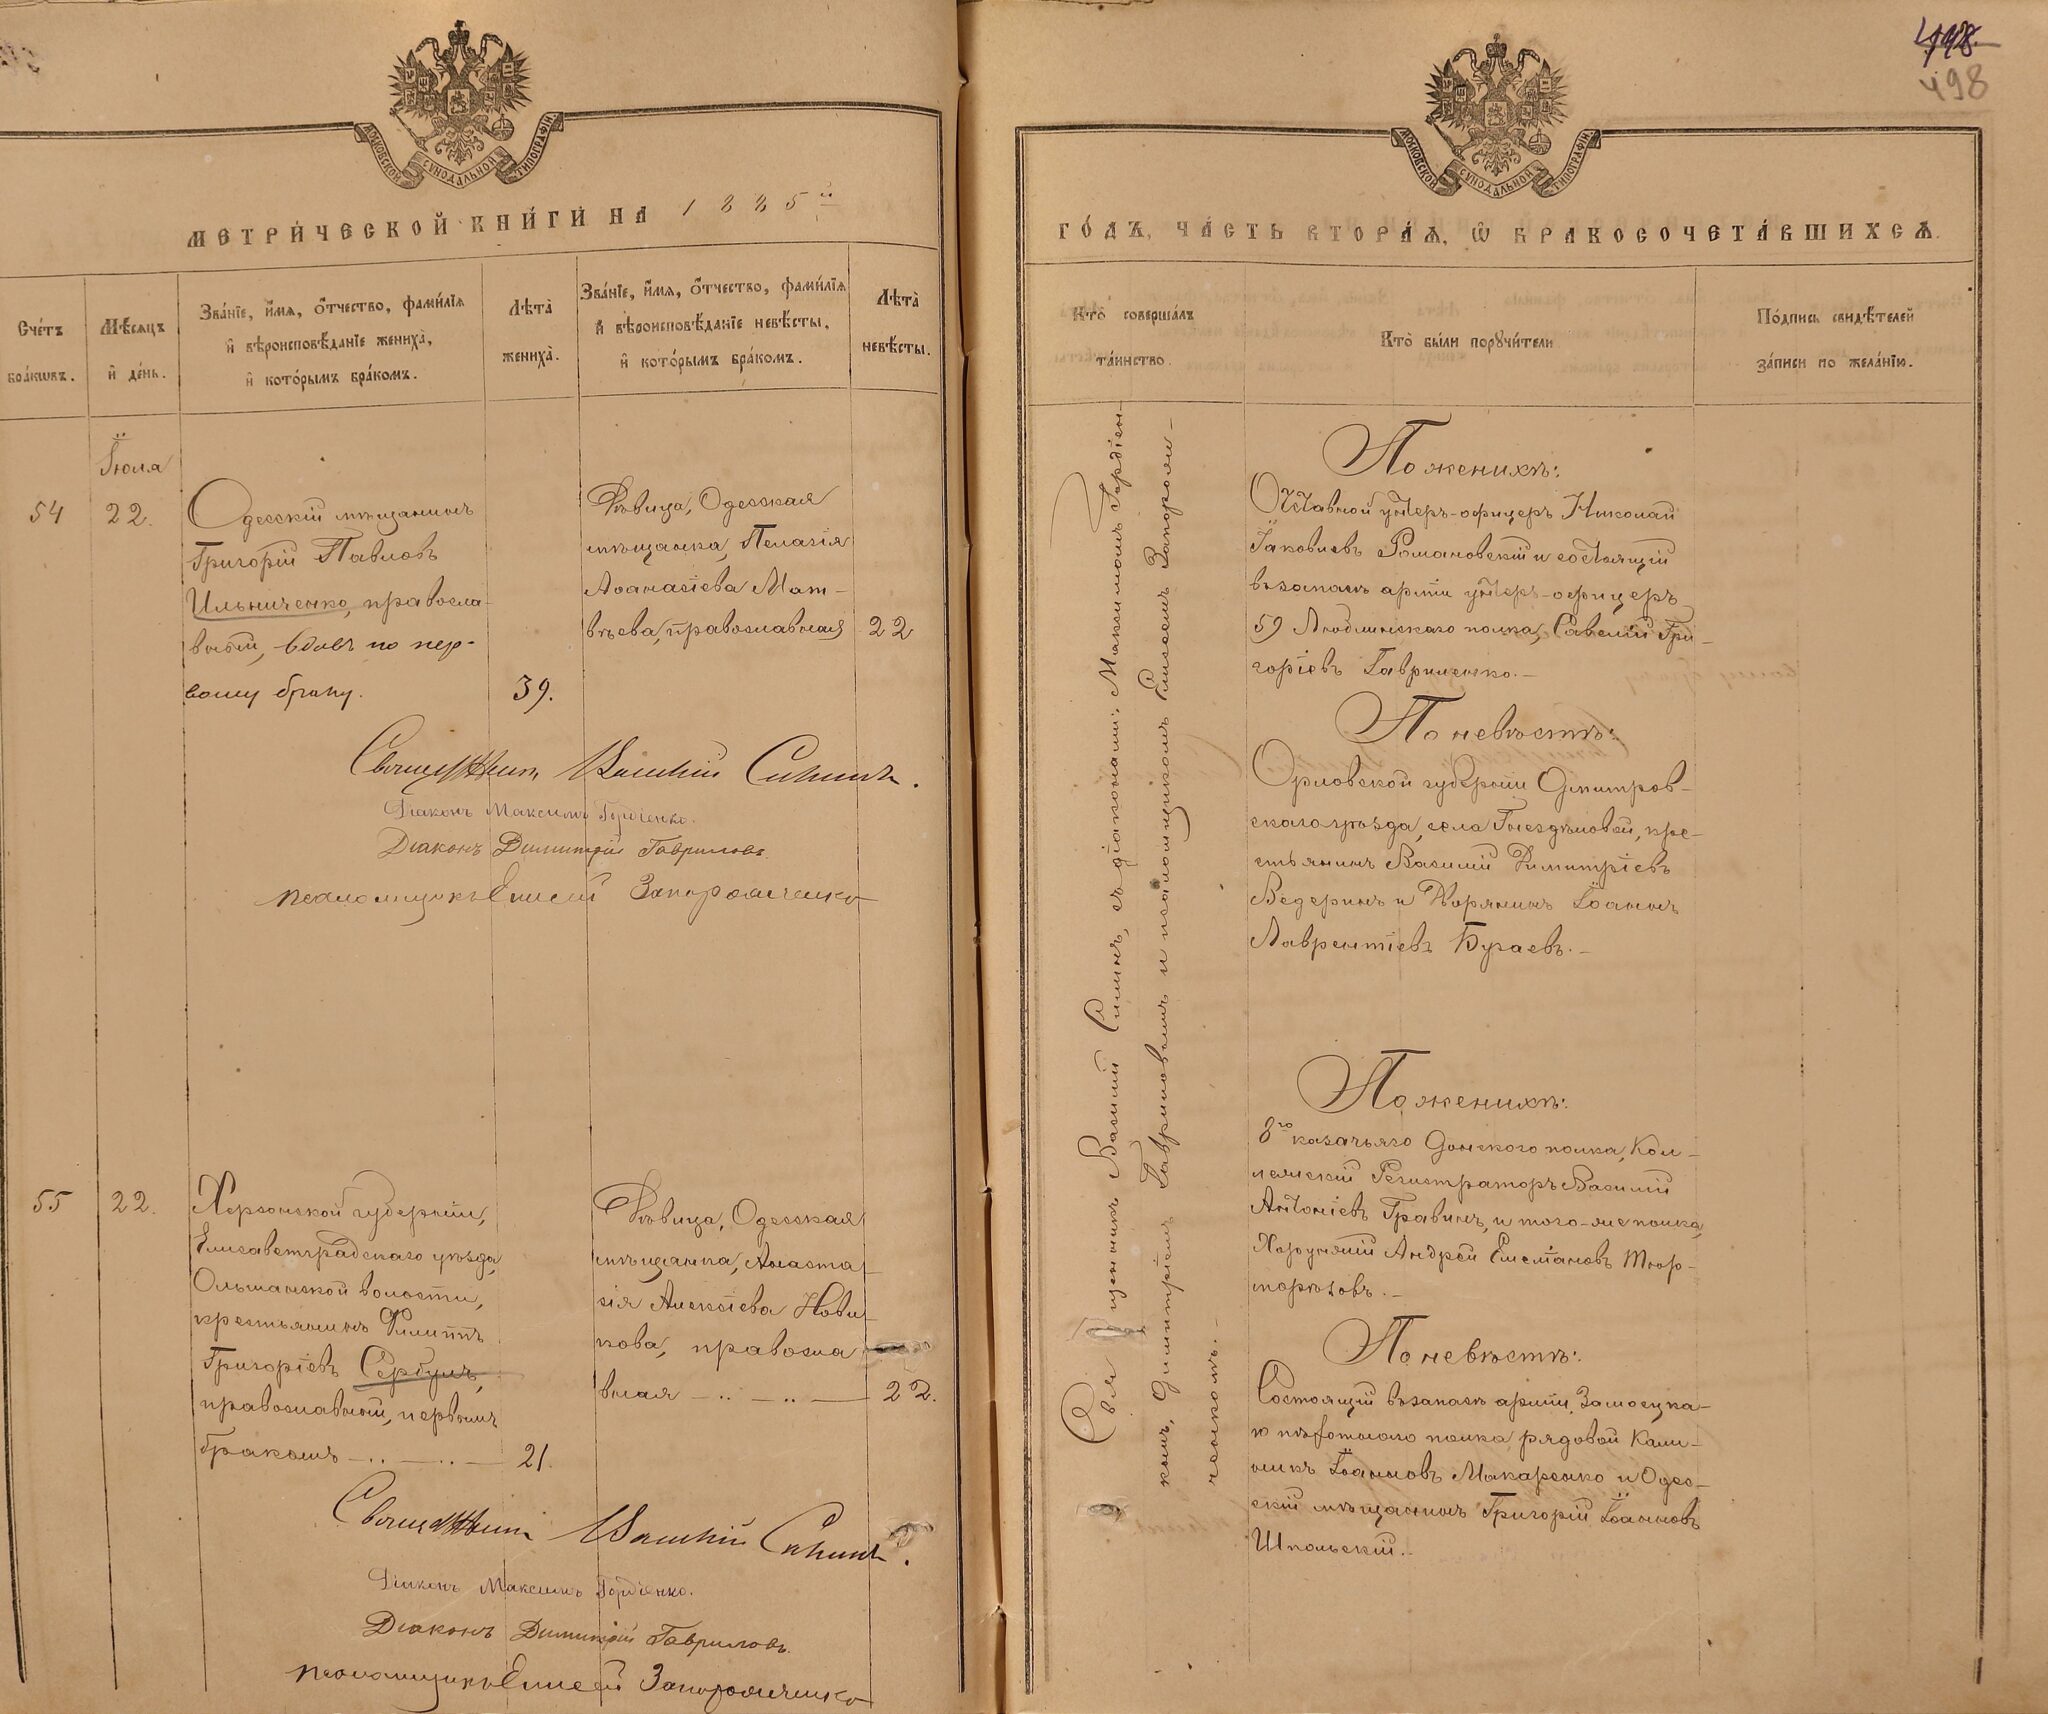 МОСКОВСКОЙ СѴНОДАЛЬНОЙ ТИПОГРАФІИ.
МЕТРИ́ЧЕСКОЙ КНИ́ГИ НА 1885й
Сче́тъ
бра́кωвъ.
Мѣ́сяцъ
и҆ де́нь.
Зва́нїе, и҆́мя, ѻ҆́тчество, фами́лїя
и҆ вѣроисповѣ́данїе жениха̀,
и҆ кото́рымъ бра́комъ.
Лѣ́та
жениха̀.
Зва́нїе, и҆́мя, ѻ҆́тчество, фами́лїя
и҆ вѣроисповѣ́данїе невѣ́сты,
и҆ кото́рымъ бра́комъ.
Лѣ́та
невѣ́сты.
Іюля
54
22.
Одесскій мѣщанинъ
Григорій Павловъ
Ильниченко, правосла-
вный, вдовъ по пер-
вому браку.
39.
Дѣвица, Одесская
мѣщанка, Пелагія
Аѳанасіева Мат-
вѣева, православная
22
Священникъ Василій Силинъ.
Діаконъ Максимъ Гордіенко.
Діаконъ Димитрій Гавриловъ.
псаломщикъ Елисей Запорожченко
55
22.
Херсонской губерніи,
Елисаветградскаго уѣзда,
Ольшанской волости,
крестьянинъ Филиппъ
Григоріевъ Сербулъ,
православный, первымъ
бракомъ
21.
Дѣвица, Одесская
мѣщанка, Анаста-
сія Алексіева Нови-
кова, правосла
вная
22.
Священникъ Василій Силинъ.
Діаконъ Максимъ Гордіенко.
Діаконъ Димитрій Гавриловъ.
псаломщикъ Елисей Запорожченко
498
МОСКОВСКОЙ СѴНОДАЛЬНОЙ ТИПОГРАФІИ.
ГО́ДЪ, ЧА́СТЬ ВТОРА́Я, Ѡ҆ БРАКОСОЧЕТА́ВШИХСЯ.
Кто̀ соверша́лъ
та́инство.
Кто̀ бы́ли порꙋчи́тели
По́дпись свидѣ́телей
за́писи по жела́нїю.
Священникъ Василій Силинъ, съ діаконами: Максимомъ Гордіен-
комъ, Димитріемъ Гавриловымъ и псаломщикомъ Елисеемъ Запорож-
ченкомъ.
По женихѣ:
Отставной унтеръ-офицеръ Николай
Іаковлевъ Романовскій и состоящій
въ запасѣ арміи унтеръ-офицеръ
59 Люблинскаго полка, Савелій Гри-
горіевъ Гавриленко.
По невѣстѣ:
Орловской губерніи Дмитров-
скаго уѣзда, села Гнездиловой, кре-
стьянинъ Василій Димитріевъ
Ведеринъ и Дворянинъ Іоаннъ
Лаврентіевъ Бугаевъ.
По женихѣ:
8го казачьяго Донского полка, Кол-
лежскій Регистраторъ Василій
Антоніевъ Гравинъ, и того-же полка,
Хорунжій Андрей
По невѣстѣ:
Состоящій въ запасѣ арміи, Замосцка-
го пѣхотнаго полка, рядовой Кали-
никъ Іоанновъ Макаренко и Одес-
скій мѣщанинъ Григорій Іоанновъ
Шпольскій.